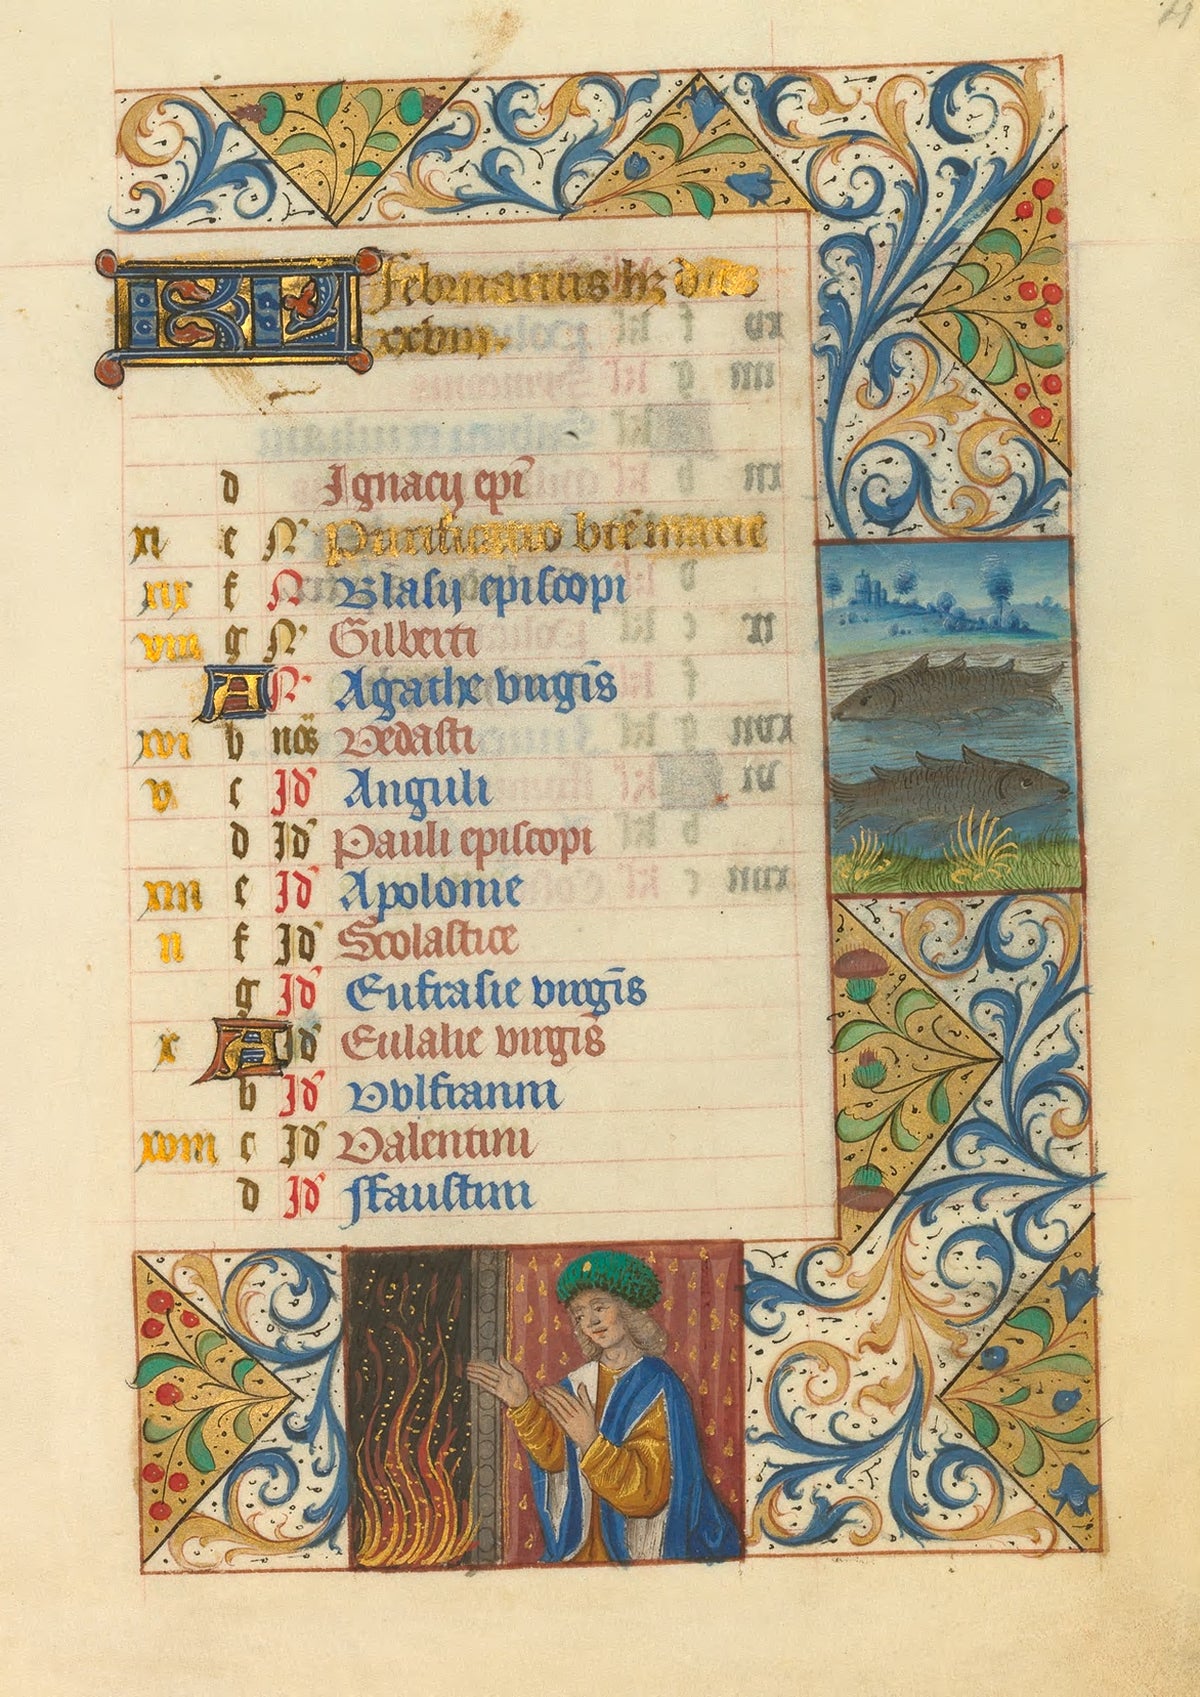 KL Februarius hz dies
xxviii.
d Ignacij epi
xi e N Purificatio bte marie
xix f N Blasij episcopi
viii g N Gilberti
A N Agathe virgis
xvi b nos Vedasti
v c Id Anguli
d Id Pauli episcopi
xiii e Id Apolonie
ii f Id Scolastice
g Id Eufrasie virgis
x A Id Eulalie virgis
b Id Vulfranni
xviii c Id Valentini
d Id ffaustini